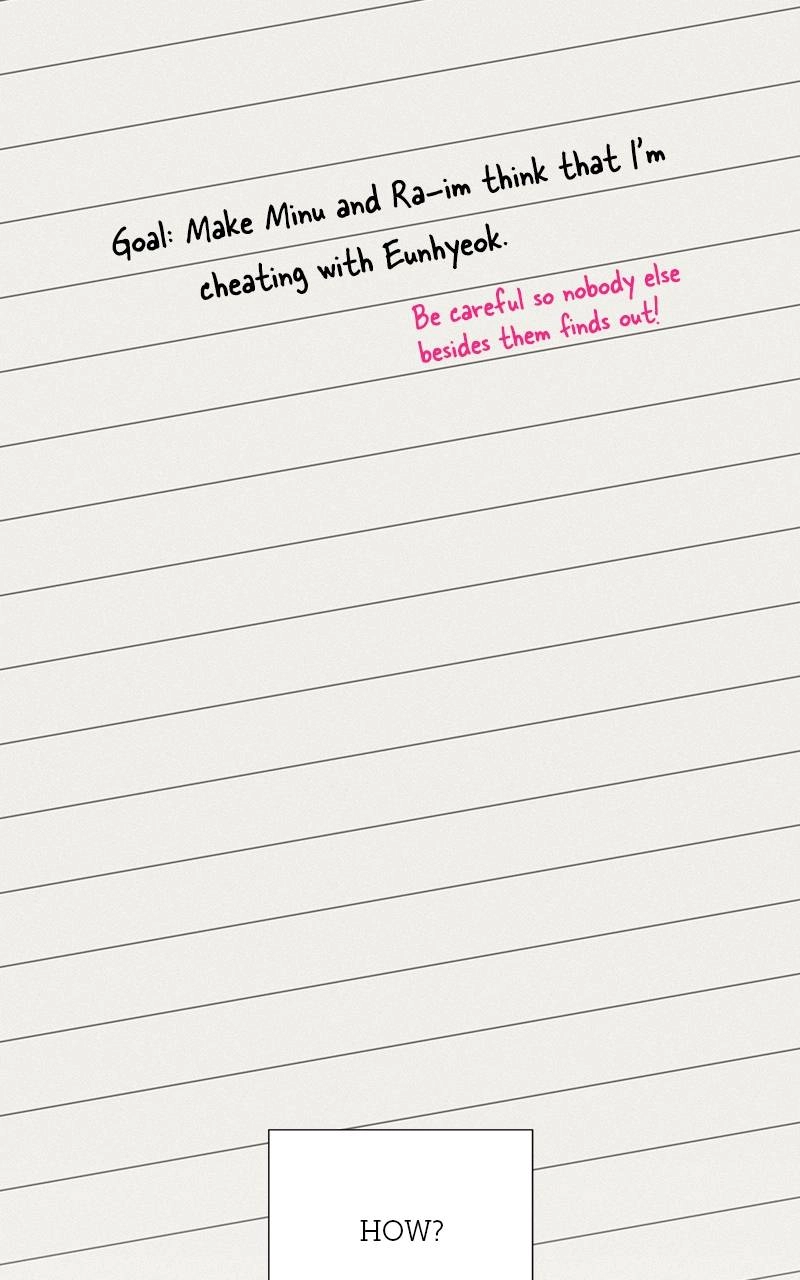 Goal: Make Minu and Ra-im think that I'm
cheating with Eunhyeok.
Be careful so nobody else
besides them finds out!
HOW?